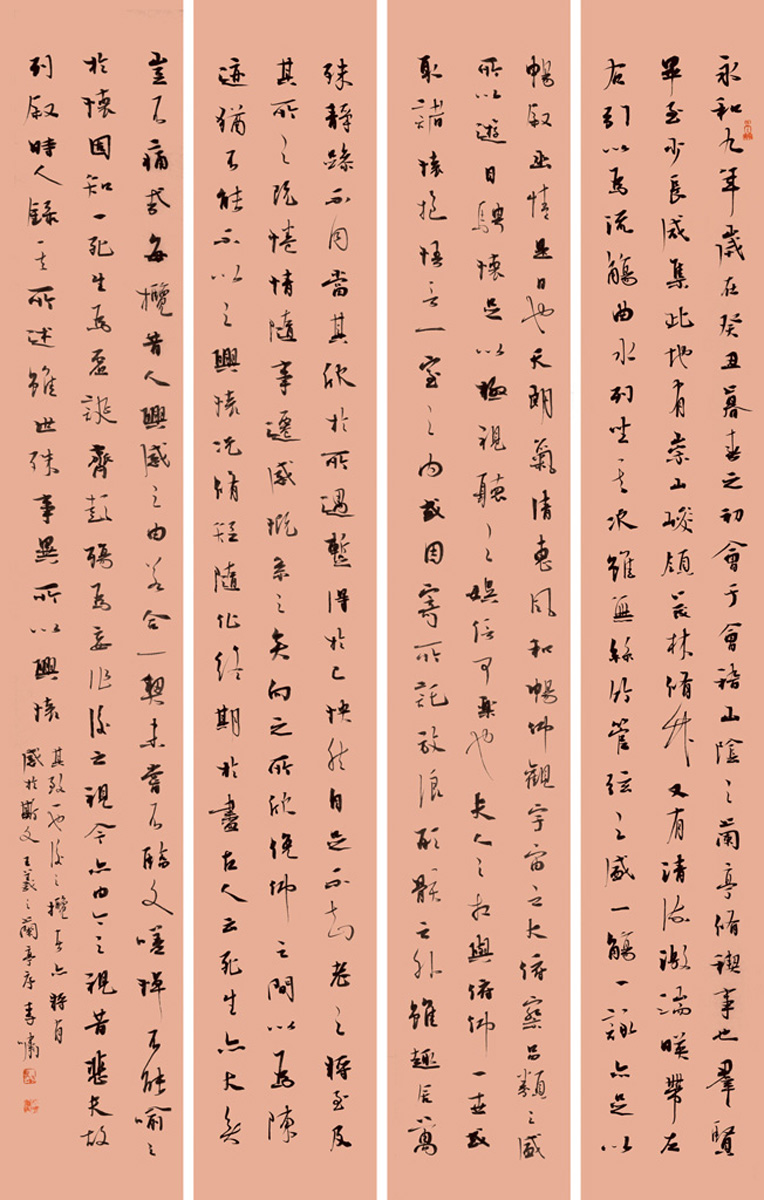 永和九年歲在癸丑暮春之初會于會稽山陰之蘭亭脩禊事也羣賢
畢至少長咸集此地有崇山峻領茂林脩竹又有清流激湍暎帶左
右引以為流觴曲水列坐其次雖無絲竹管弦之盛一觴一詠亦足以
暢敘幽情是日也天朗氣清惠風和暢仰觀宇宙之大俯察品類之盛
所以遊目騁懷足以極視聽之娛信可樂也夫人之相與俯仰一世或
取諸懷抱悟言一室之內或因寄所託放浪形骸之外雖趣舍萬
殊靜躁不同當其欣於所遇暫得於己怏然自足不知老之將至及
其所之既惓情隨事遷感慨係之矣向之所欣俛仰之間以為陳
迹猶不能不以之興懷況脩短隨化終期於盡古人云死生亦大矣
豈不痛哉每攬昔人興感之由若合一契未嘗不臨文嗟悼不能喻之
於懷固知一死生為虛誕齊彭殤為妄作後之視今亦由今之視昔悲夫故
列敘時人錄其所述雖世殊事異所以興懷
其致一也後之攬者亦將有
感於斯文王羲之蘭亭序李嘯